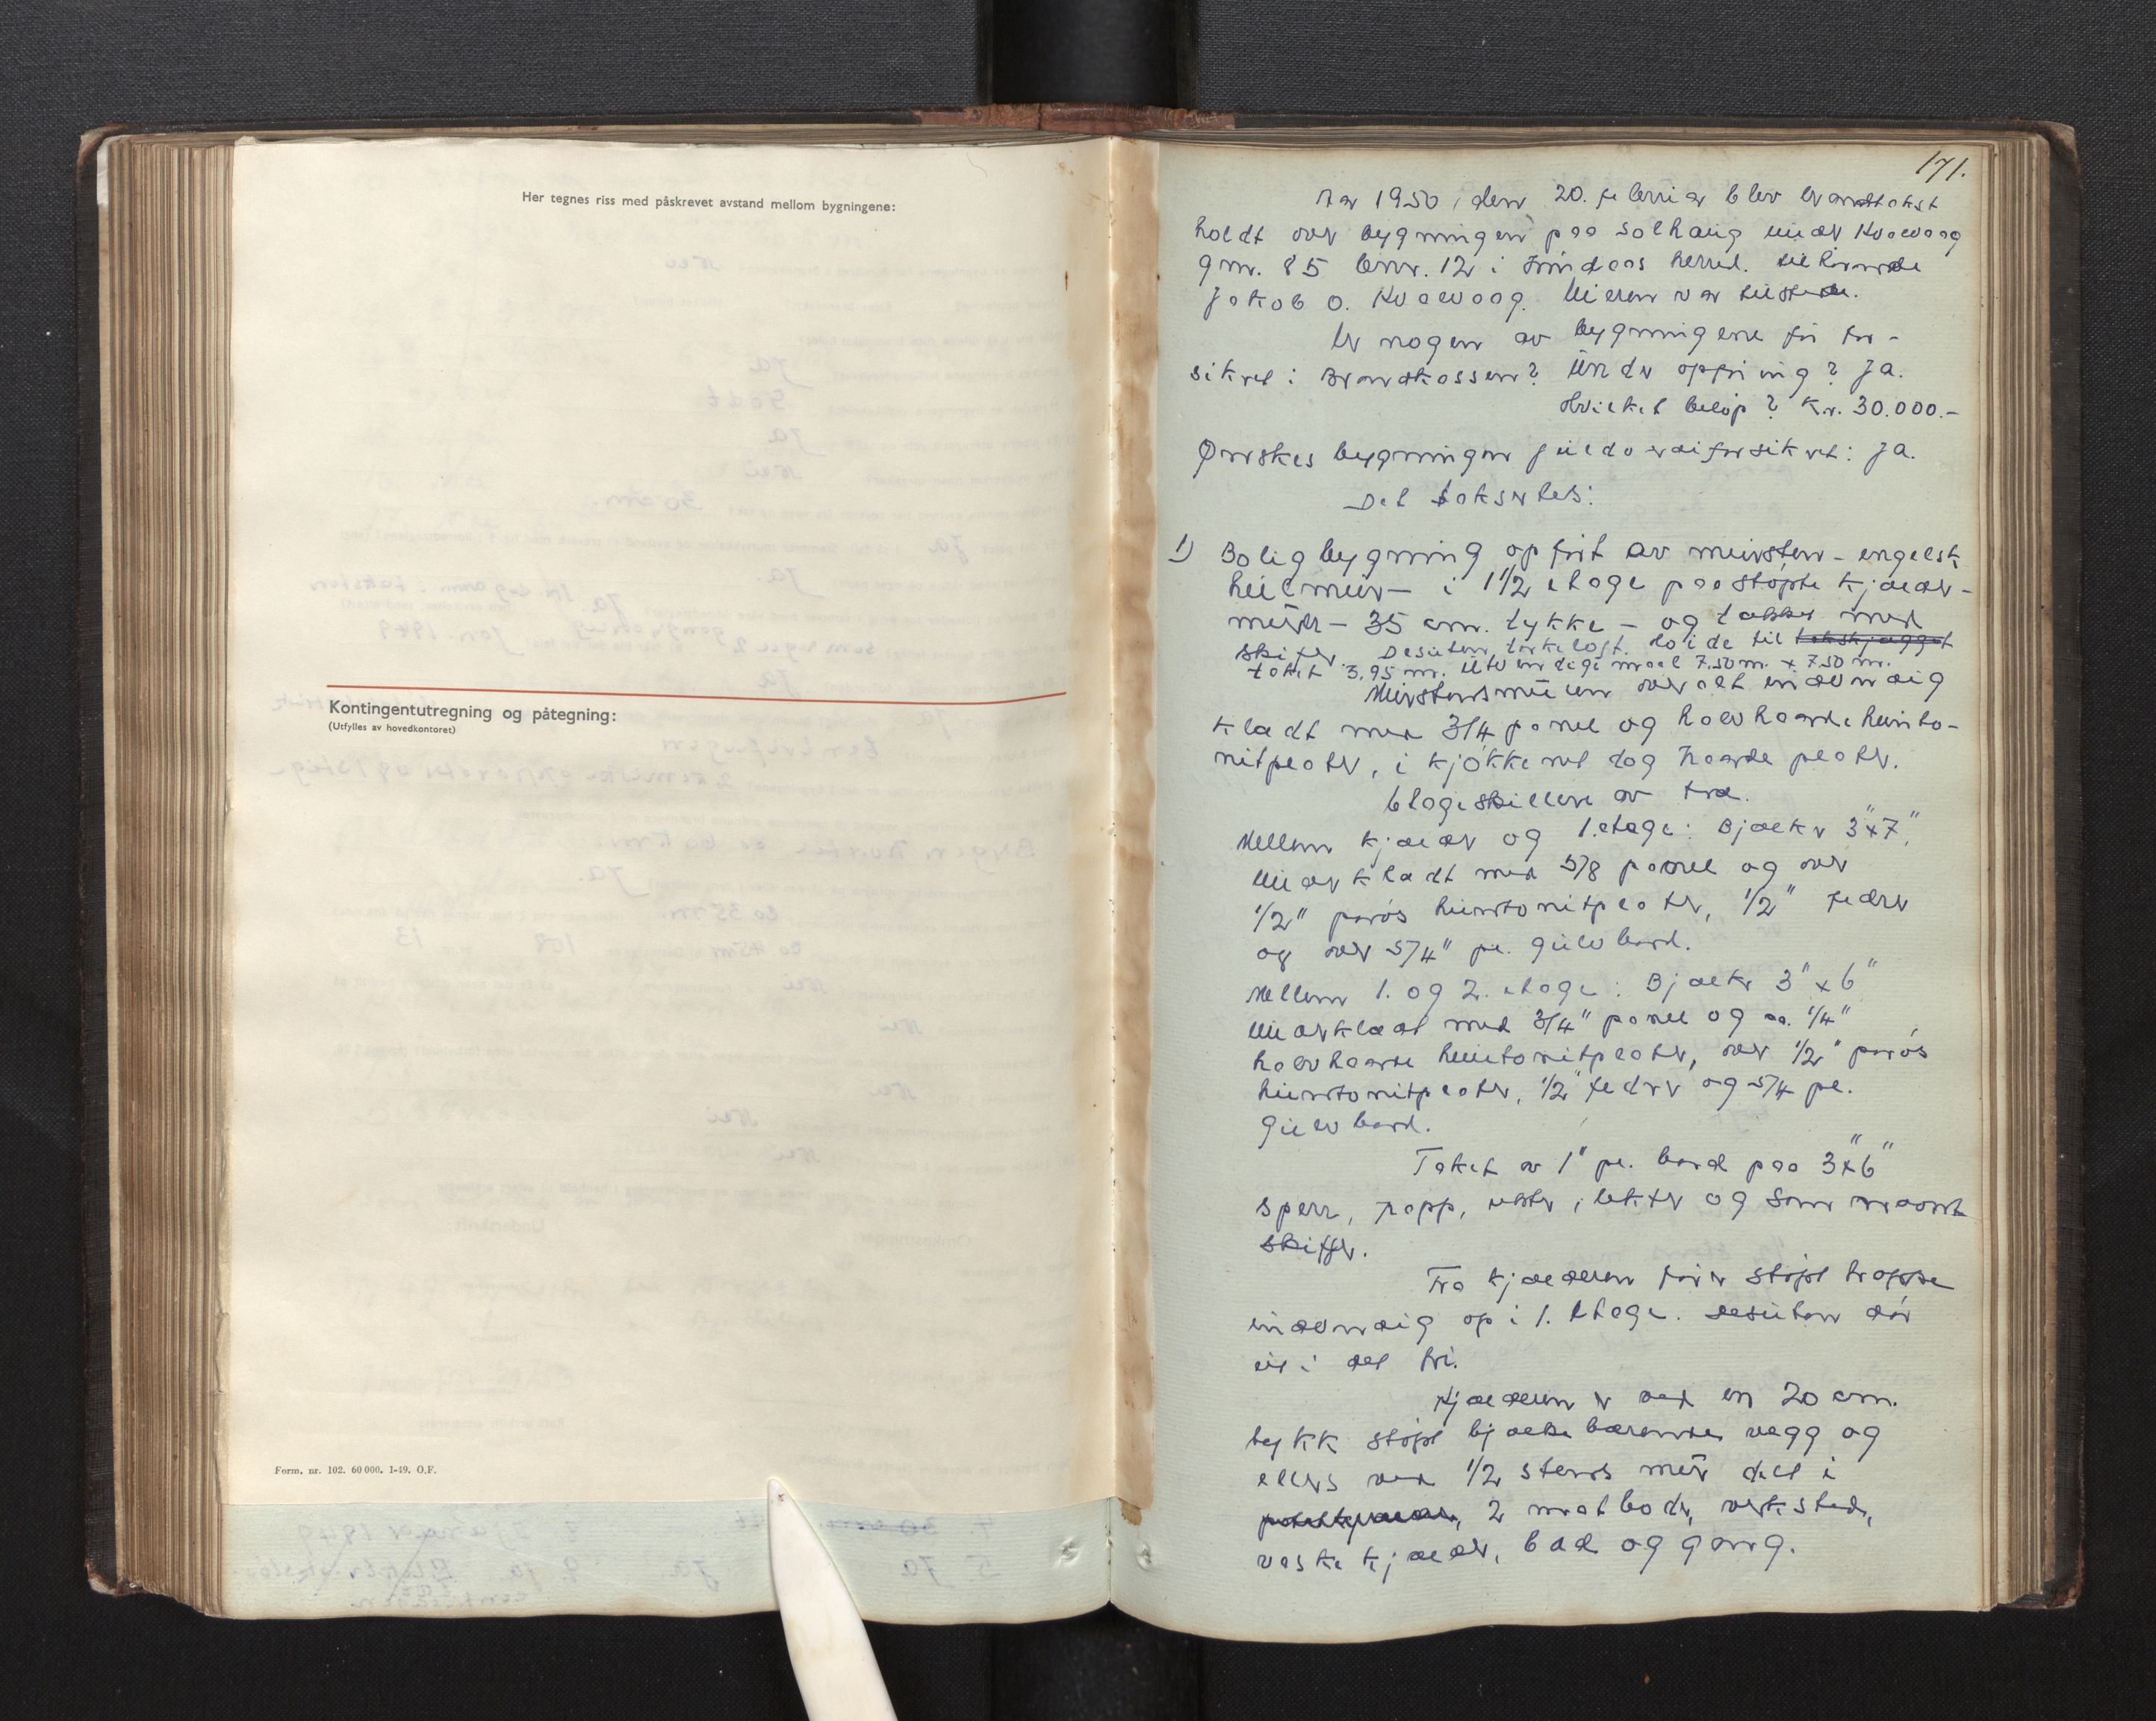 Her tegnes riss med påskrevet avstand mellom bygningene:
Kontingentutregning og påtegning:
(Utfylles av hovedkontoret)
Form. nr. 102. 60 000. 1-49. O.F.
171.
Aar 1950, den 20. februar blev brandtakst
holdt over bygningen paa Solhaug under Kvalvaag
gnr. 85 bnr. 12 i Lindaas herred. tilhørende
Jakob O. Kvalvaag. Eieren var tilstede.
Er nogen av bygningene før for-
sikret i Brandkassen? Under opføring? Ja.
Hvilket beløp? Kr. 30.000.-
Ønskes bygningen fuldverdiforsikret: Ja.
Det takseres:
1) Bolig bygning opført av mursten - engelsk
hulmur - i 1 1/2 etage paa støpte kjælder-
murer - 35 cm. tykke - og tækket med
skifer. Desuten tørkeloft. Høide til takskjægget
taket 3,95 m. Utvendige maal 7.50 m. x 7.50 m.
Murstensmuren overalt indvendig
klædt med 3/4 panel og halvhaarde hunto-
nitplater, i kjøkkenet dog haarde plater.
Etageskillere av træ.
Mellem kjælder og 1. etage: Bjælker 3"x7",
underklædt med 5/8 panel og over
1/2" porøs huntonitplater, 1/2" lekter
og over 5/4" pl. gulvbord.
Mellem 1. og 2. etage: Bjælker 3"x6"
underklædt med 3/4" panel og ca. 1/4"
halvhaarde huntonitplater, over 1/2" porøs
huntonitplater, 1/2" lekter og 5/4 pl.
gulvbord.
Taket av 1" pl. bord paa 3"x6"
sperr, papp, lekter og som nævnt
skiffer.
Fra kjælderen fører støpt trappe
indvendig op i 1. etage. Desuten dør
ut i det fri.
Kjælderen er ved en 20 cm.
tykk støpt bjælkebærende vægg og
ellers ved 1/2 stens mur delt i
2 matboder, verksted,
vaskekjælder, bad og gang.